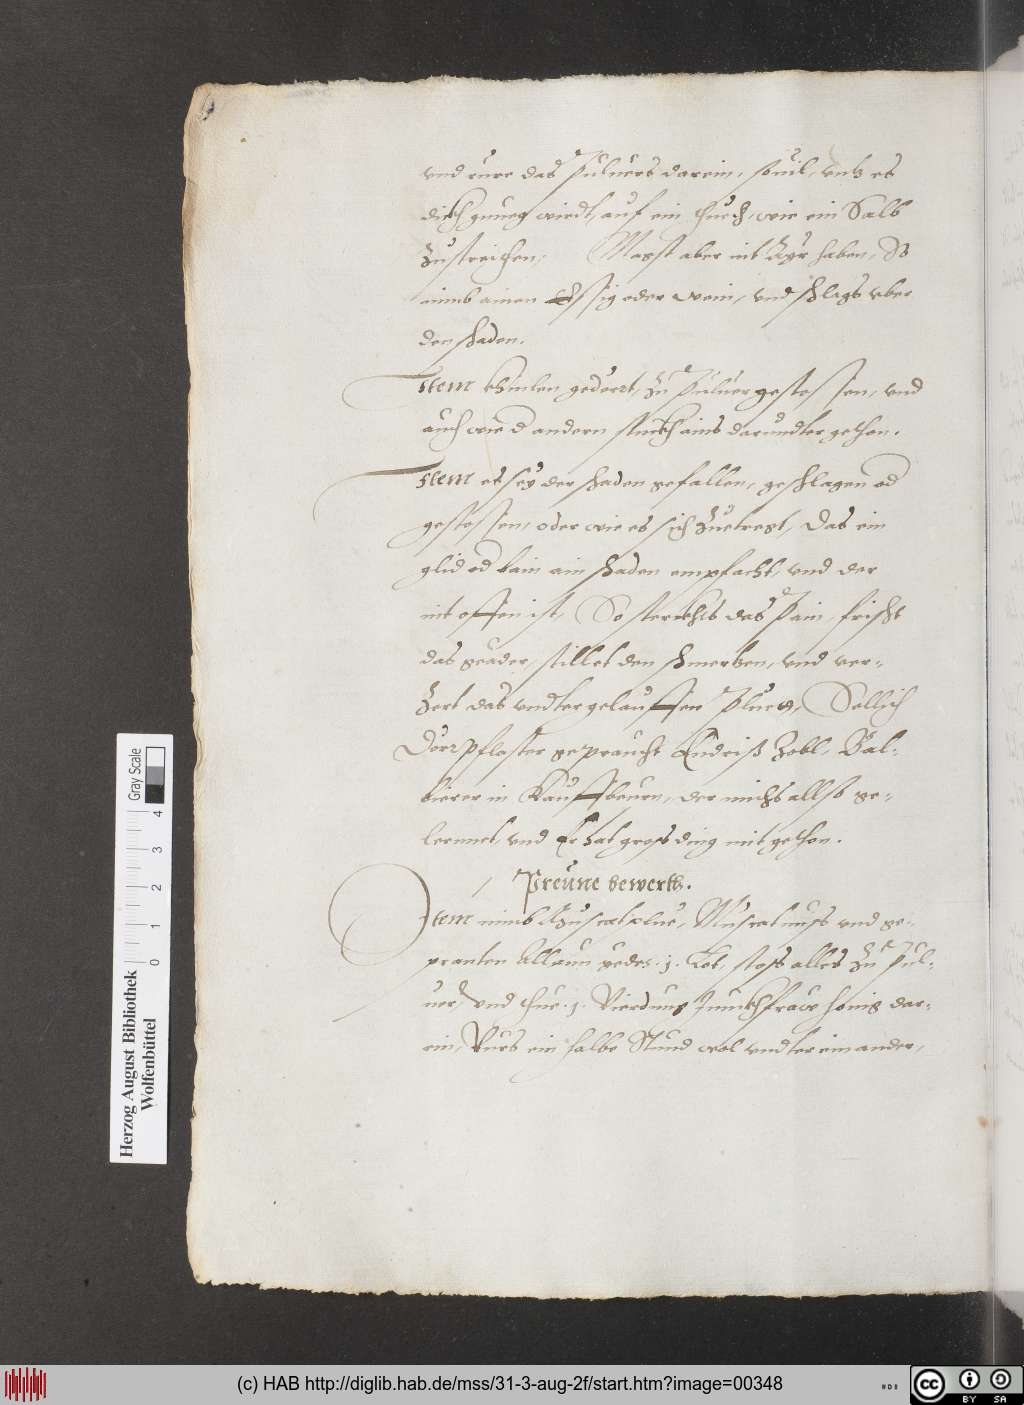 vnd rure das Puluers darein, souil, vntz es
dickh gnueg wirdt, auf ein thuech, wie ein Salb
Zustreichen, Magst aber nit Ayr haben, So
nimb ainen Essig oder wein, vnd schlags vber
den schaden.
Item gederrt, zu Puluer gestossen, vnd
auch wie d andern stuckh ains darundter gethon.
Item es sey der schaden gefallen, geschlagen od
gestossen, oder wie es sich Zuetregt, Das ein
glid od bain ain schaden empfacht, vnd der
nit offen ist, So sterckhts das Pain, frischt
das geäder, stillet den schmerzen, vnd ver-
Zert das vndtergelauffen Pluet, Sollich
Dörrpflaster gepraucht Endriß Zobl, Bal-
bierer in Kauffbeurn, der michs allso ge-
lernnet, vnd Er hat gross ding mit gethon.
Preune bewerth.
Item nimb Muscatplue, Muscatnuss vnd ge-
pranten Allaun yedes .1. Lot, stoss alles Zu Pul-
uer, vnd thue .1. Vierdung Junckhfraw honig dar-
ein, Ruers ein halbe Stund wol vndtereinander,
Herzog August Bibliothek
Wolfenbüttel
0 1 2 3 4
Gray Scale
(c) HAB http://diglib.hab.de/mss/31-3-aug-2f/start.htm?image=00348
cc BY SA